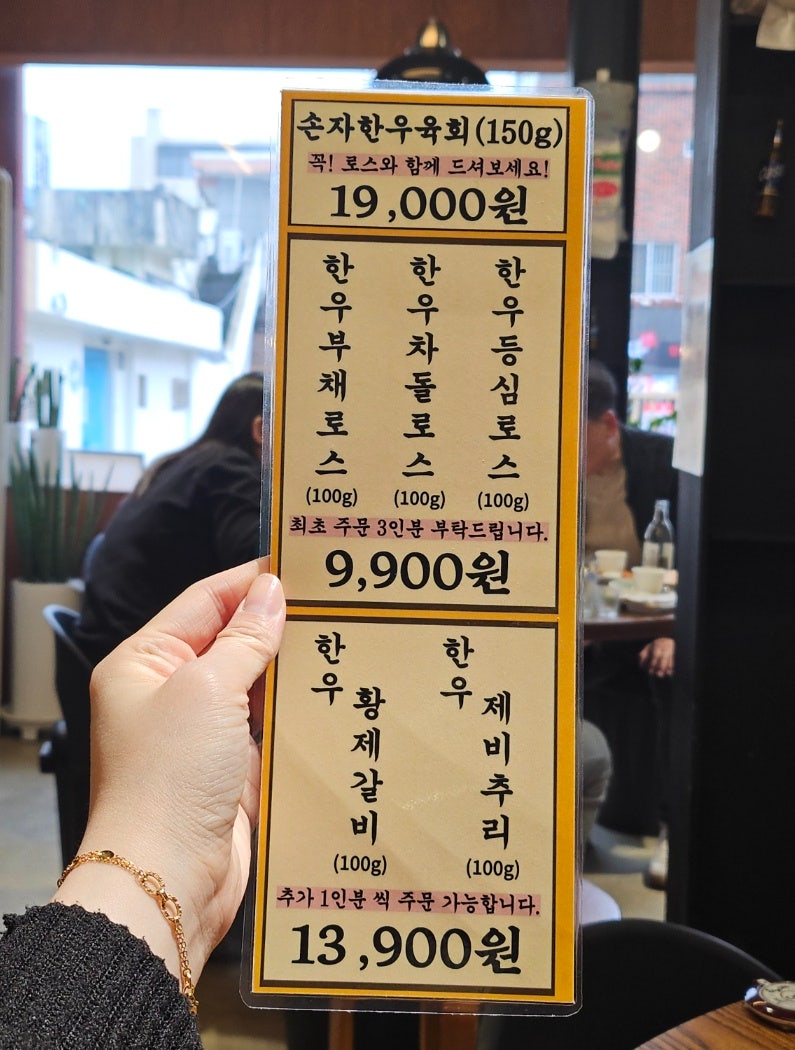 손자한우육회(150g)
꼭! 로스와 함께 드셔보세요!
19,000원
한우부채로스
(100g)
한우차돌로스
(100g)
한우등심로스
(100g)
최초 주문 3인분 부탁드립니다.
9,900원
한우황제갈비
(100g)
한우제비추리
(100g)
추가 1인분 씩 주문 가능합니다.
13,900원